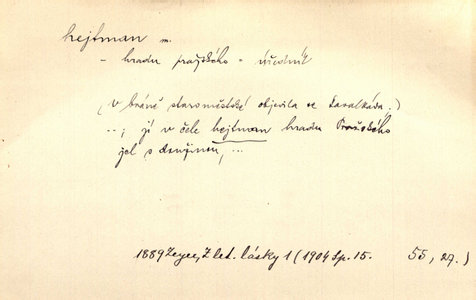 hejtman m.
- hradu pražského - úředník
(v bráně staroměstské objevila se kavalkáda.)
..; jí v čele hejtman hradu Pražského
jel s družinou, ...
1889 Zeyer, Z let. lásky 1 (1904 Sp. 15. 55, 27.)